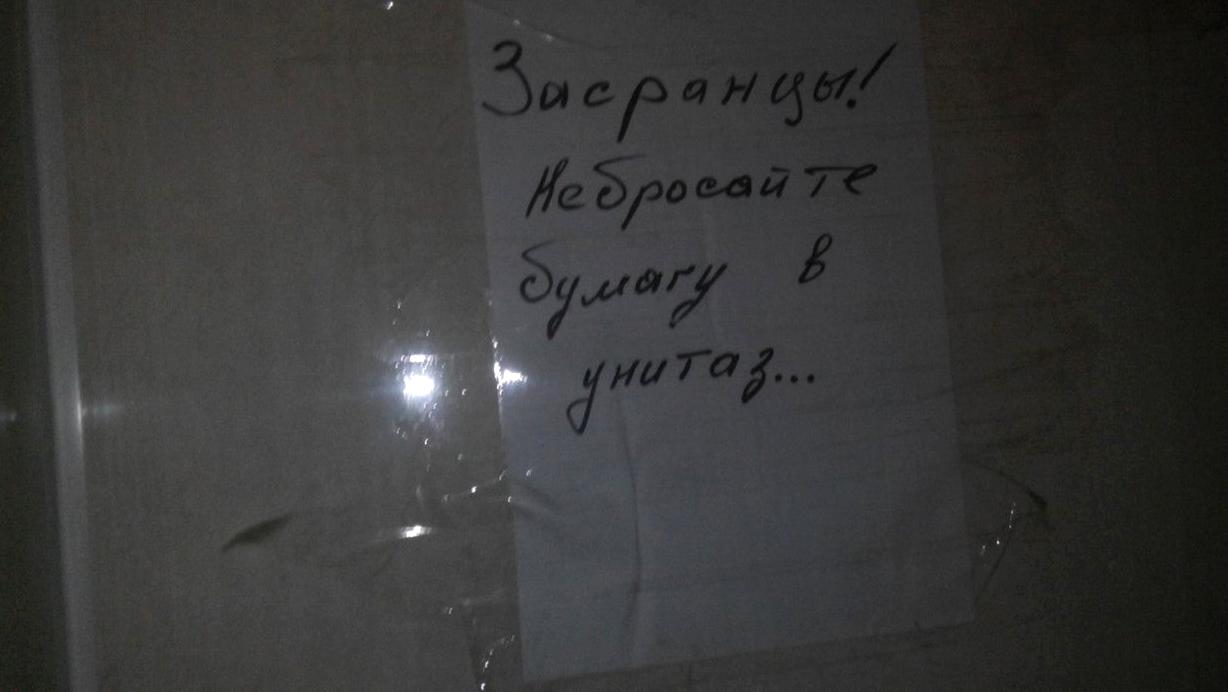 Засранцы!
Небросайте
бумагу в
унитаз...